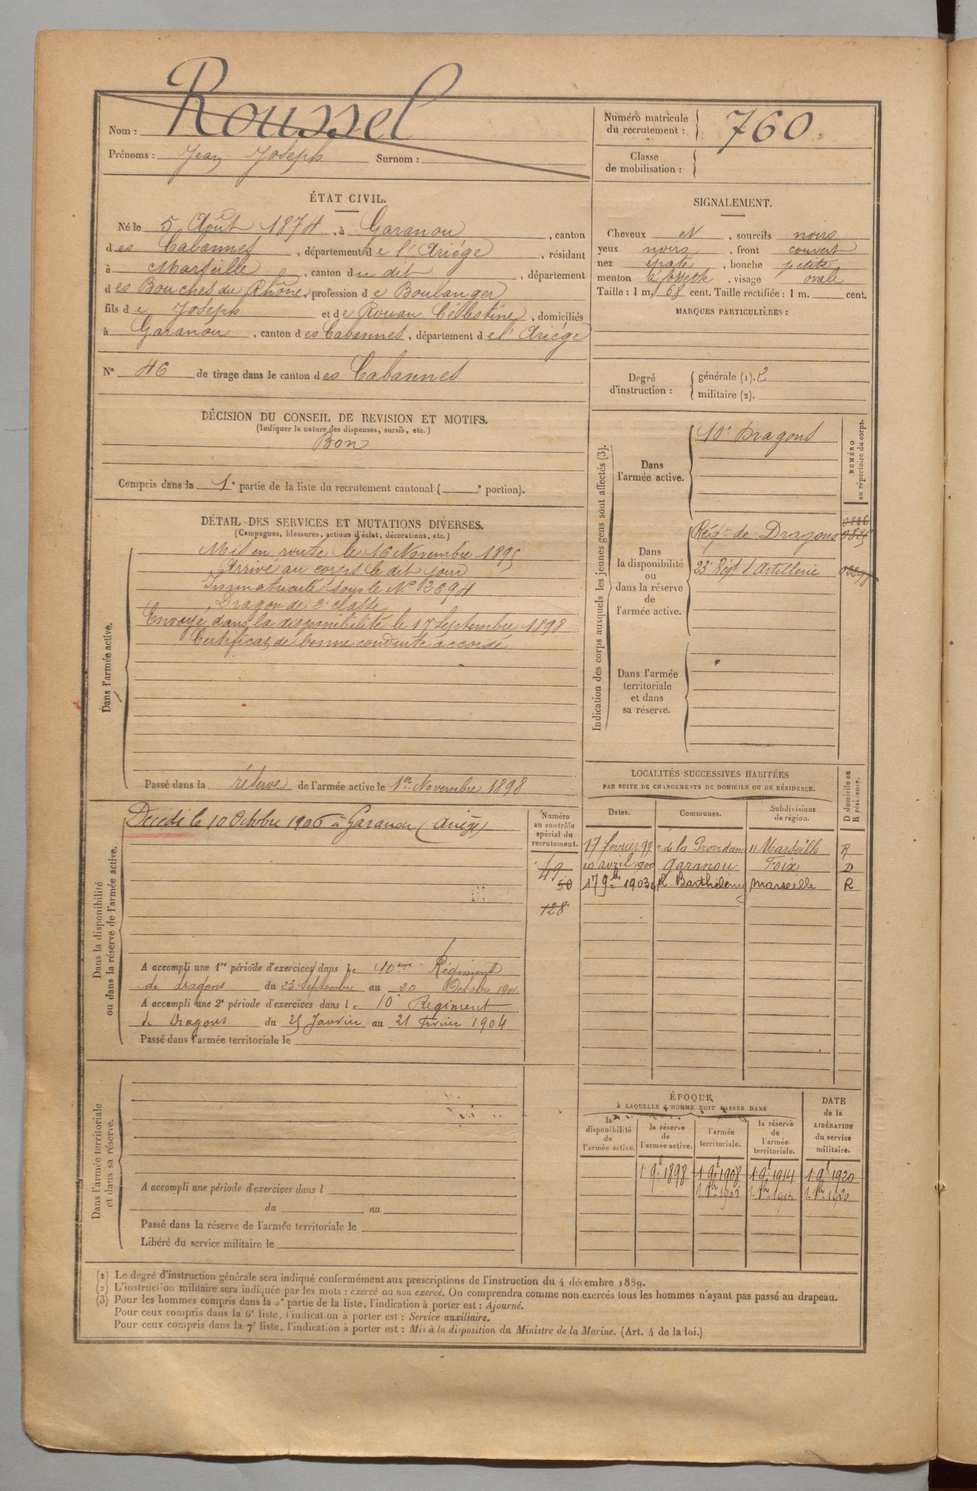 Nom : Roussel
Prénoms : Jean Joseph Surnom :
Numéro matricule du recrutement : 760
Classe de mobilisation :
ÉTAT CIVIL.
Né le 5 Août 1874, à Garanou, canton
des Cabannes, département de l'Ariège, résidant
à Marseille, canton du dit, département
des Bouches du Rhône, profession de Boulanger
fils de Joseph et de Rouan Célestine, domiciliés
à Garanou, canton des Cabannes, département de l'Ariège
N° 46 de tirage dans le canton des Cabannes
SIGNALEMENT.
Cheveux N, sourcils noirs
yeux noirs, front couvert
nez épaté, bouche petite
menton à fossette, visage ovale
Taille : 1 m. 68 cent. Taille rectifiée : 1 m. cent.
MARQUES PARTICULIÈRES :
Degré d'instruction : générale (1). 2
militaire (2).
DÉCISION DU CONSEIL DE REVISION ET MOTIFS.
(Indiquer la nature des dispenses, sursis, etc.)
Bon
Compris dans la 1e partie de la liste du recrutement cantonal ( e portion).
DÉTAIL DES SERVICES ET MUTATIONS DIVERSES.
(Campagnes, blessures, actions d'éclat, décorations, etc.)
Dans l'armée active.
Mis en route le 16 Novembre 1895
Arrivé au corps le dit jour
Immatriculé sous le N°
Dragon de 2e classe
Envoyé dans la disponibilité le 17 Septembre 1898
Certificat de bonne conduite accordé
Passé dans la réserve de l'armée active le 1er Novembre 1898
Indication des corps auxquels les jeunes gens sont affectés (3).
NUMÉRO au répertoire du corps.
Dans l'armée active. 10e Dragons
Dans la disponibilité ou dans la réserve de l'armée active.
Régt de Dragons
23e Régt d'Artillerie
Dans l'armée territoriale et dans sa réserve.
Dans la disponibilité ou dans la réserve de l'armée active.
Décédé le 10 Octobre 1906 à Garanou (Ariège)
Numéro au contrôle spécial du recrutement.
49
50
128
A accompli une 1re période d'exercices dans le 10eme Régiment
de dragons du 23 Septembre au 20 Octobre 1901
A accompli une 2e période d'exercices dans le 10e Régiment
de Dragons du 25 Janvier au 21 Février 1904
Passé dans l'armée territoriale le
LOCALITÉS SUCCESSIVES HABITÉES
PAR SUITE DE CHANGEMENTS DE DOMICILE OU DE RÉSIDENCE.
Dates. Communes. Subdivisions de région. D domicile ou R résidence.
17 février r. de la Providence 11 Marseille R
10 avril 1900 Garanou Foix D
17 9bre 1903 Barthélemy Marseille R
Dans l'armée territoriale et dans sa réserve.
A accompli une période d'exercices dans l
du au
Passé dans la réserve de l'armée territoriale le
Libéré du service militaire le
ÉPOQUE
À LAQUELLE L'HOMME DOIT PASSER DANS
la disponibilité de l'armée active. la réserve de l'armée active. l'armée territoriale. la réserve de l'armée territoriale. DATE de la LIBÉRATION du service militaire.
1 9e 1898 1 9e 1908 1 9e 1914 1 9e 1920
(1) Le degré d'instruction générale sera indiqué conformément aux prescriptions de l'instruction du 4 décembre 1889.
(2) L'instruction militaire sera indiquée par les mots : exercé ou non exercé. On comprendra comme non exercés tous les hommes n'ayant pas passé au drapeau.
(3) Pour les hommes compris dans la 2e partie de la liste, l'indication à porter est : Ajourné.
Pour ceux compris dans la 6e liste, l'indication à porter est : Service auxiliaire.
Pour ceux compris dans la 7e liste, l'indication à porter est : Mis à la disposition du Ministre de la Marine. (Art. 4 de la loi.)